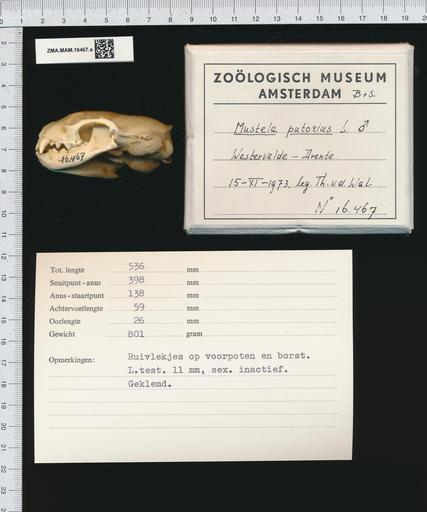 ZMA.MAM.16467.a
16.467
ZOÖLOGISCH MUSEUM
AMSTERDAM B+S.
Mustela putorius L. ♂
Westervelde - Drente.
15-XI-1973, leg. Th. v.d. Wal
N° 16.467
Tot. lengte 536 mm
Snuitpunt - anus 398 mm
Anus - staartpunt 138 mm
Achtervoetlengte 59 mm
Oorlengte 26 mm
Gewicht 801 gram
Opmerkingen: Ruivlekjes op voorpoten en borst.
L.test. 11 mm, sex. inactief.
Geklemd.